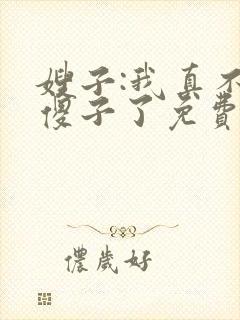 嫂子:我真不
傻子了免费
儂歲好